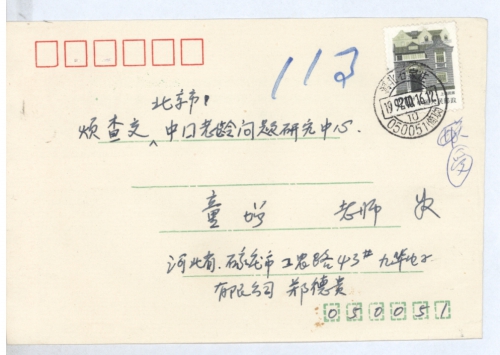 113
北京市:
烦查交 中口老龄问题研究中心.
童增 老师 收
河北省.石家庄市工农路43#九华电子
有限公司 郑德贵
050051
1992.10.16.12
050051